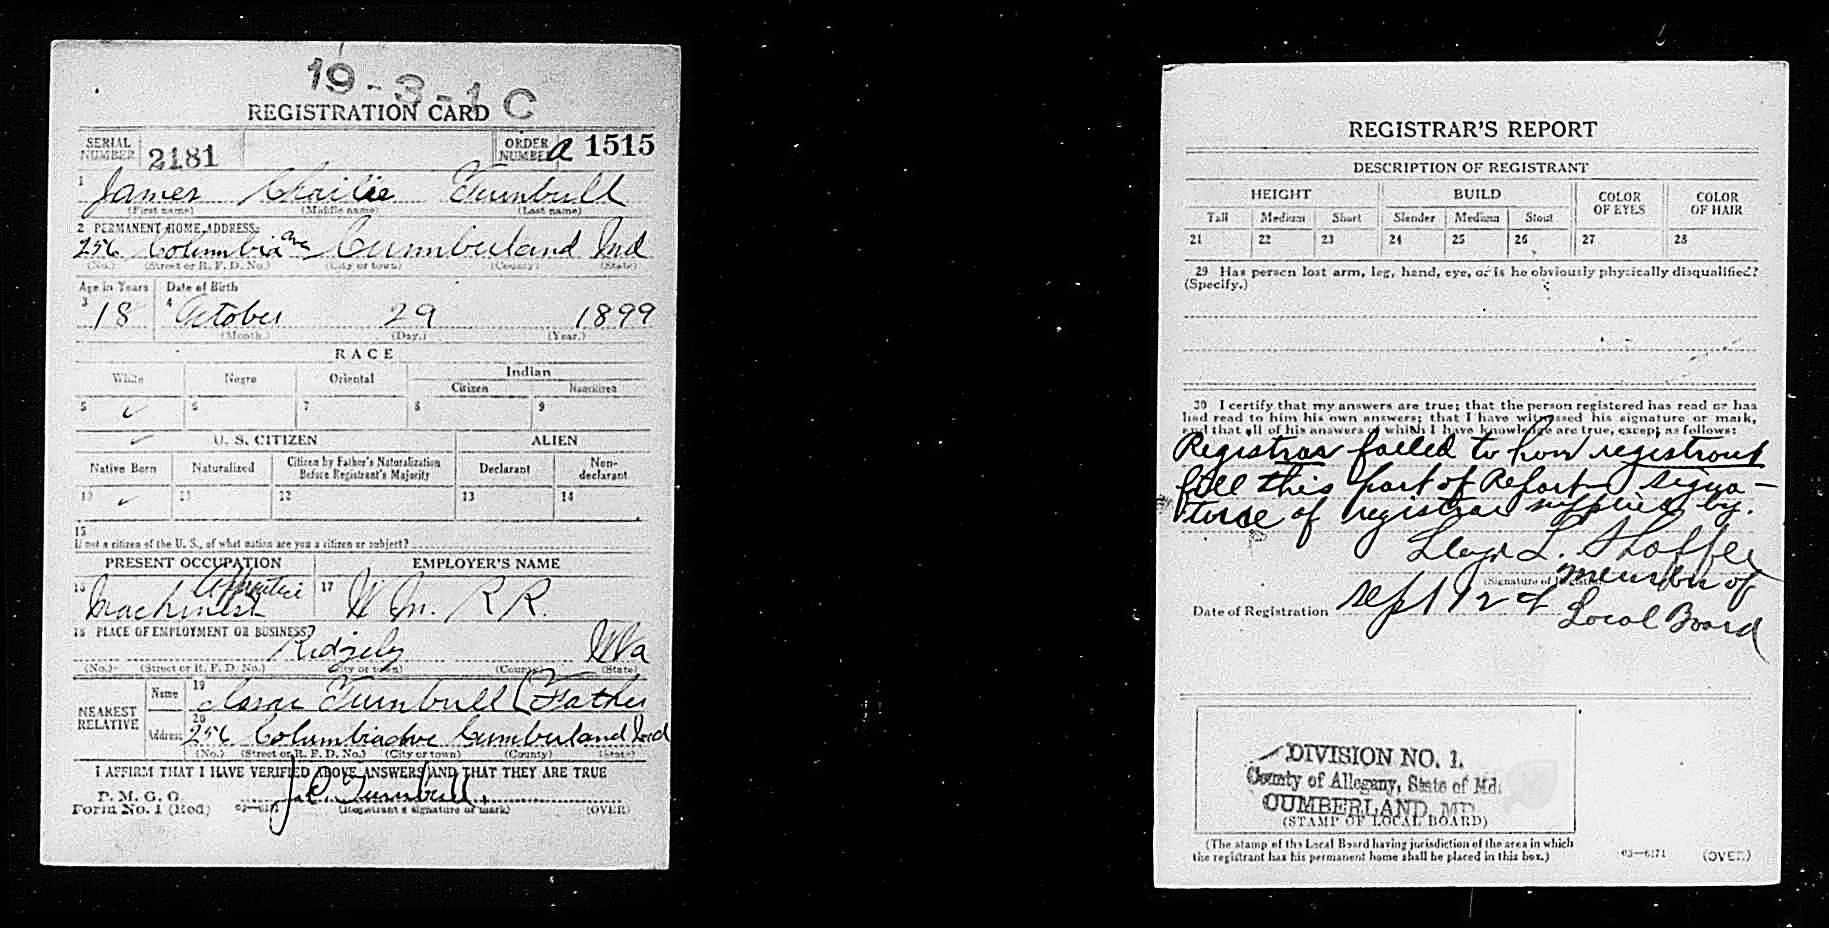 19-3-1 C
REGISTRATION CARD
SERIAL NUMBER 2181 ORDER NUMBER A 1515
1 James Charlie Turnbull
(First name) (Middle name) (Last name)
2 PERMANENT HOME ADDRESS:
256 Columbia Ave Cumberland Md
(No.) (Street or R. F. D. No.) (City or town) (County) (State)
Age in Years Date of Birth
3 18 4 October 29 1899
(Month.) (Day.) (Year.)
RACE
White Negro Oriental Indian
Citizen Noncitizen
5 ✓ 6 7 8 9
✓ U. S. CITIZEN ALIEN
Native Born Naturalized Citizen by Father's Naturalization Before Registrant's Majority Declarant Non-declarant
10 ✓ 11 12 13 14
15
If not a citizen of the U. S., of what nation are you a citizen or subject?
PRESENT OCCUPATION EMPLOYER'S NAME
16 Machinist Apprentice 17 W. M. R R.
18 PLACE OF EMPLOYMENT OR BUSINESS:
Ridgely W Va
(No.) (Street or R. F. D. No.) (City or town) (County) (State)
NEAREST RELATIVE
Name 19 Turnbull (Father
Address 20 256 Columbia Ave Cumberland Md
(No.) (Street or R. F. D. No.) (City or town) (County) (State)
I AFFIRM THAT I HAVE VERIFIED ABOVE ANSWERS AND THAT THEY ARE TRUE
P. M. G. O.
Form No. 1 (Red) 03-6171 J. C. Turnbull.
(Registrant's signature or mark) (OVER)
REGISTRAR'S REPORT
DESCRIPTION OF REGISTRANT
HEIGHT BUILD COLOR OF EYES COLOR OF HAIR
Tall Medium Short Slender Medium Stout
21 22 23 24 25 26 27 28
29 Has person lost arm, leg, hand, eye, or is he obviously physically disqualified?
(Specify.)
30 I certify that my answers are true; that the person registered has read or has
had read to him his own answers; that I have witnessed his signature or mark,
and that all of his answers of which I have knowledge are true, except as follows:
Registrar failed to have registrant
fill this part of Report signa-
ture of registrar supplied by.
Lloyd L. Shaffer
(Signature of Registrar)
member of
Date of Registration Sept 12
Local Board
DIVISION NO. 1.
County of Allegany, State of Md.
CUMBERLAND, MD.
(STAMP OF LOCAL BOARD)
(The stamp of the Local Board having jurisdiction of the area in which
the registrant has his permanent home shall be placed in this box.)
03-6171 (OVER)